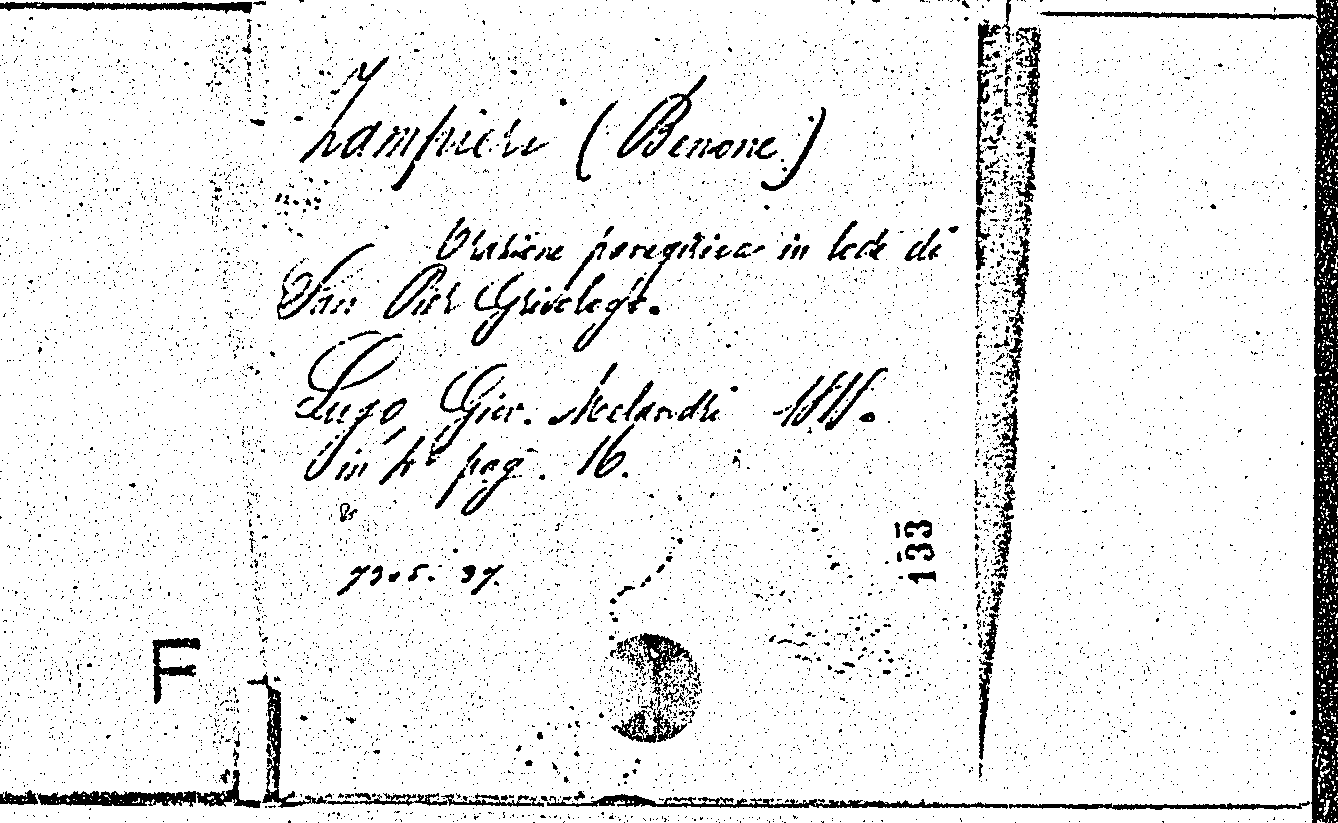 Zampieri (Benone)
Orazione panegirica in lode di
San Pier Grisologo.
Lugo, Giov. Melandri 1818.
in 4° pag. 16.
73.5.37.
133
F